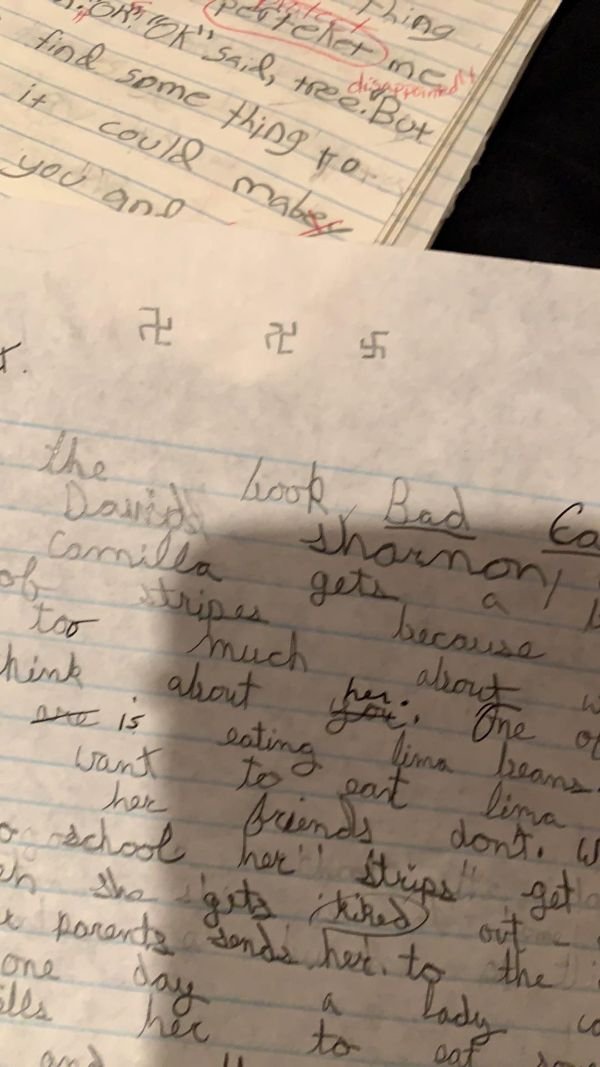 thing
perfeker me
"OK" "OK" said, tree. But
disappointed
find some thing to
it could make
you and
卍 卍 卐
the book Bad Ca
David Shannon,
Camilla gets a b
of stripes because
too much about w
hink about you her. One of
are is eating lima beans.
want to eat lima
her friends dont. W
o school her "strips" get
en she gets kiked out
r parents sends her to the
one day a lady co
ells her to eat so
and